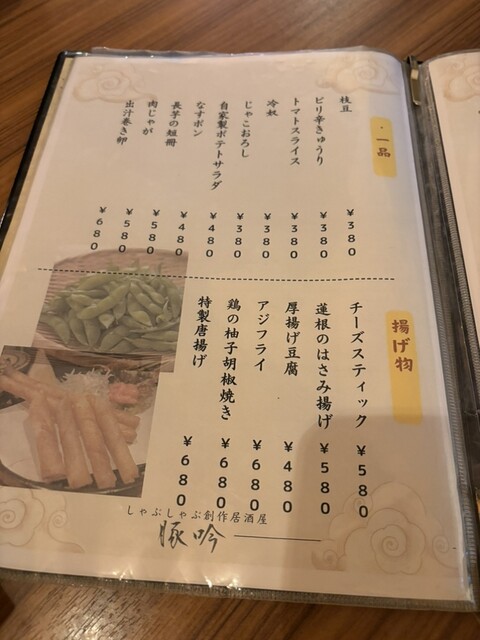 ・一品
枝豆 ¥380
ピリ辛きゅうり ¥380
トマトスライス ¥380
冷奴 ¥380
じゃこおろし ¥380
自家製ポテトサラダ ¥480
なすポン ¥480
長芋の短冊 ¥580
肉じゃが ¥580
出汁巻き卵 ¥680
揚げ物
チーズスティック ¥580
蓮根のはさみ揚げ ¥580
厚揚げ豆腐 ¥480
アジフライ ¥680
鶏の柚子胡椒焼き ¥680
特製唐揚げ ¥680
しゃぶしゃぶ創作居酒屋
豚吟